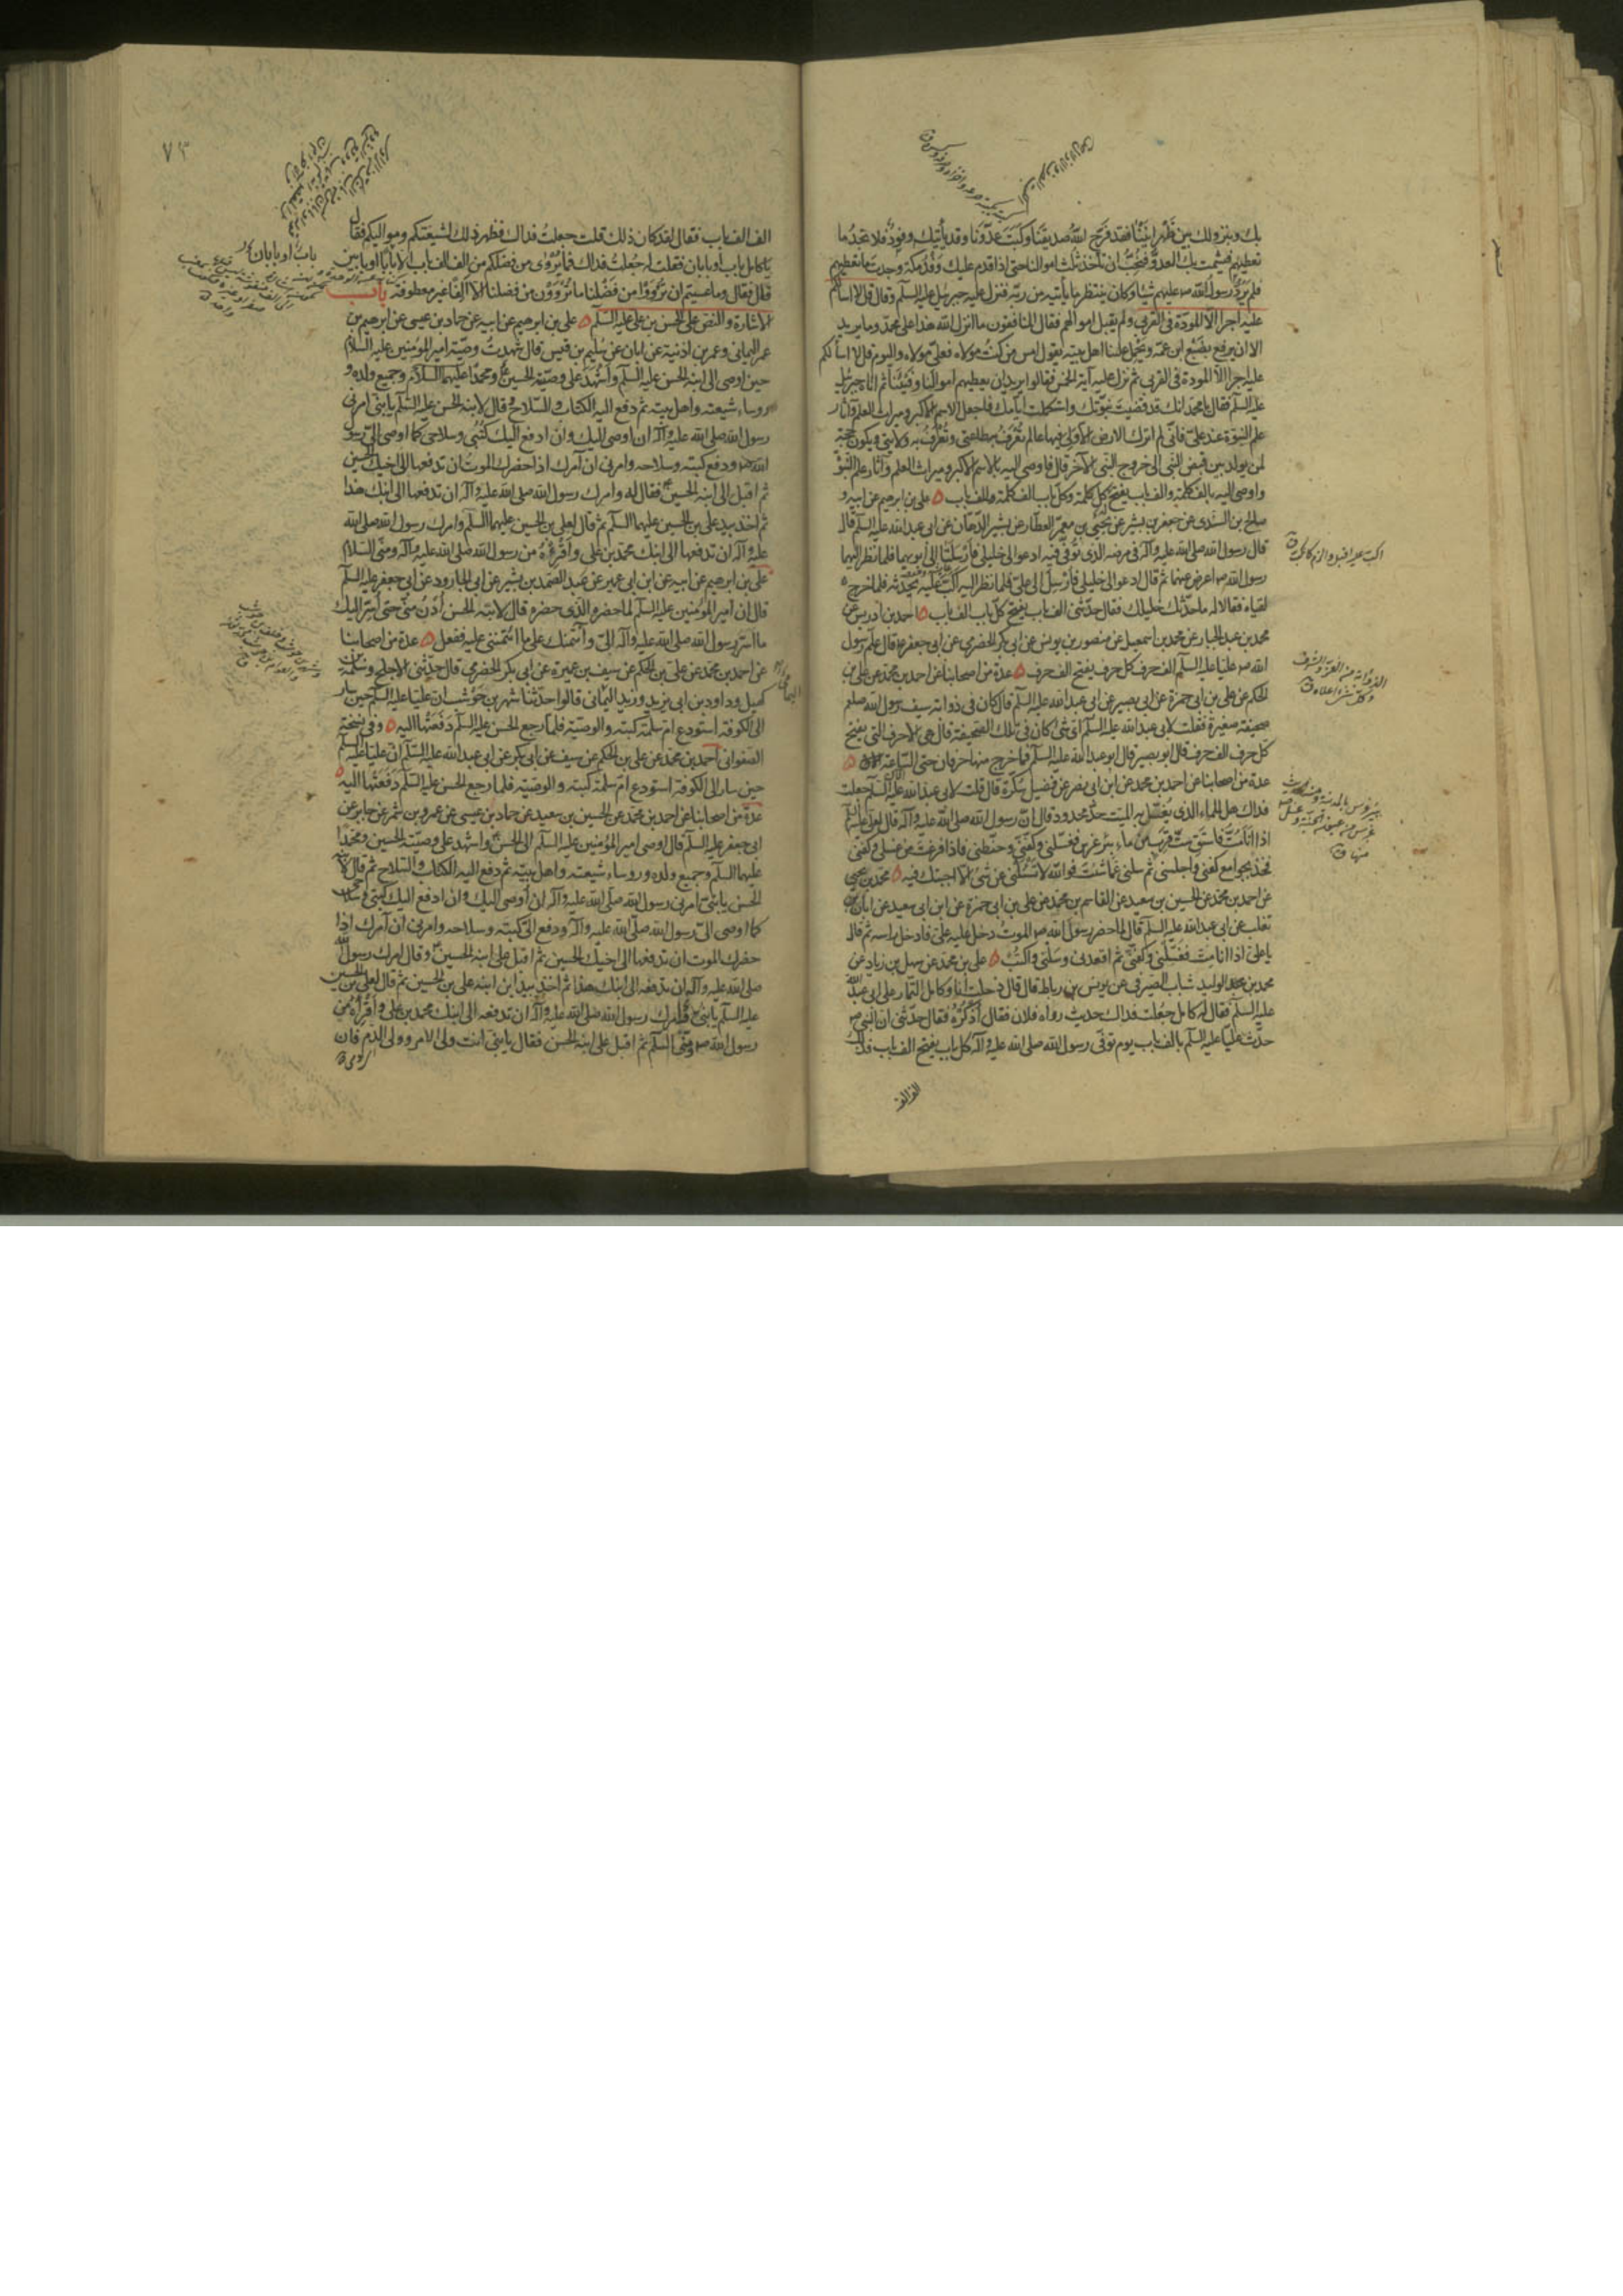 بك وبنزولك بين ظهرانينا فقد فرّح الله صديقنا وكبت عدوّنا وقد يأتيك وفود فلا تجد ما
تعطيهم فيشمت بك العدوّ فنحبّ ان تأخذ ثلث اموالنا حتى اذا قدم عليك وفد مكة وجدت ما تعطيهم
فلم يردّ رسول الله ص عليهم شيئا وكان ينتظر ما يأتيه من ربّه فنزل عليه جبرئيل عليه السلم وقال قل لا اسألكم
عليه اجرا الا المودّة فى القربى ولم يقبل اموالهم فقال المنافقون ما انزل الله هذا على محمّد وما يريد
الا ان يرفع بضبع ابن عمّه ويحمل علينا اهل بيته يقول امس من كنت مولاه فعلىّ مولاه واليوم قل لا اسألكم
عليه اجرا الا المودة فى القربى ثم نزل عليه آية الخمس فقالوا يريد ان يعطيهم اموالنا وفيئنا ثم اتاه جبرئيل
عليه السلم فقال يا محمد انك قد قضيت نبوّتك واستكملت ايامك فاجعل الاسم الاكبر وميراث العلم وآثار
علم النبوّة عند علىّ فانّى لم اترك الارض الا ولى فيها عالم تعرف به طاعتى وتعرف به ولايتى ويكون حجّة
لمن يولد بين قبض النبى الى خروج النبى الآخر قال فاوصى اليه بالاسم الاكبر وميراث العلم وآثار علم النبوّة
واوصى اليه بالف كلمة والف باب يفتح كل كلمة وكل باب الف كلمة والف باب ۵ على بن ابرهيم عن ابيه و
صالح بن السندى عن جعفر بن بشير عن يحيى بن معمّر العطار عن بشير الدّهان عن ابى عبد الله عليه السلم قال
قال رسول الله صلى الله عليه وآله فى مرضه الذى توفّى فيه ادعوا لى خليلى فارسلتا الى ابويهما فلما نظر اليهما
رسول الله ص اعرض عنهما ثم قال ادعوا لى خليلى فارسل الى علىّ فلما نظر اليه اكبّ عليه يحدّثه فلما خرج
لقياه فقالا له ما حدّثك خليلك فقال حدّثنى الف باب يفتح كلّ باب الف باب ۵ احمد بن ادريس عن
محمد بن عبد الجبار عن محمد بن اسمعيل عن منصور بن يونس عن ابى بكر الحضرمى عن ابى جعفر ع قال علّم رسول
الله ص عليا عليه السلم الف حرف كل حرف يفتح الف حرف ۵ عدة من اصحابنا عن احمد بن محمد عن على بن
الحكم عن على بن ابى حمزة عن ابى بصير عن ابى عبد الله عليه السلم قال كان فى ذوابة سيف رسول الله صلعم
صحيفة صغيرة فقلت لابى عبد الله عليه السلم اىّ شئ كان فى تلك الصّحيفة قال هى الاحرف التى يفتح
كل حرف الف حرف قال ابو بصير قال ابو عبد الله عليه السلم فما خرج منها حرفان حتى السّاعة ۵
عدة من اصحابنا عن احمد بن محمد عن ابن ابى نصر عن فضيل سكرة قال قلت لابى عبد الله عليه السلم جعلت
فداك هل للماء الذى يغسّل به الميت حدّ محدود قال انّ رسول الله صلى الله عليه وآله قال لعلى عليه السلم
اذا انا متّ فاستق ستّ قرب من ماء بئر غرس فغسّلنى وكفنّى وحنّطنى فاذا فرغت من غسلى وكفنى
فخذ بجوامع كفنى واجلسنى ثم سلنى عمّا شئت فوالله لا تسئلنى عن شئ الا اجبتك فيه ۵ محمد بن يحيى
عن احمد بن محمد عن الحسين بن سعيد عن القاسم بن محمد عن على بن ابى حمزة عن ابن ابى سعيد عن ابان بن
تغلب عن ابى عبد الله عليه السلم قال لما حضر رسول الله ص الموت دخل عليه على فادخل راسه ثم قال
يا على اذا انا متّ فغسّلنى وكفنّى ثم اقعدنى وسلنى واكتب ۵ على بن محمد عن سهل بن زياد عن
محمد بن الوليد شباب الصيرفى عن يونس بن رباط قال قال دخلت انا وكامل التمّار على ابى عبد الله
عليه السلم فقال له كامل جعلت فداك حديث رواه فلان فقال اذكره فقال حدّثنى ان النبى ص
حدّث عليّا عليه السلم بالف باب يوم توفّى رسول الله صلى الله عليه وآله كل باب يفتح الف باب فذلك
الف الف
بئر غرس بالمدينة
منها ق
٧٣
الف الف باب فقال لقد كان ذلك قلت جعلت فداك فظهر ذلك لشيعتكم ومواليكم فقال
يا كامل باب او بابان فقلت له جعلت فداك فما يروى من فضلكم من الف الف باب الا باب او بابين
قال فقال وما عسيتم ان ترووا من فضلنا ما تروون من فضلنا الا الفا غير معطوفة باب
الاشارة والنص على الحسن بن على عليه السلم ۵ على بن ابرهيم عن ابيه عن حماد بن عيسى عن ابرهيم بن
عمر اليمانى وعمر بن اذنية عن ابان عن سليم بن قيس قال شهدت وصيّة امير المؤمنين عليه السلام
حين اوصى الى ابنه الحسن عليه السلم واشهد على وصيّته الحسين ع ومحمدا عليهما السلام وجميع ولده و
روساء شيعته واهل بيته ثم دفع اليه الكتاب والسّلاح وقال لابنه الحسن عليه السلم يا بنىّ امرنى
رسول الله صلى الله عليه وآله ان اوصى اليك وان ادفع اليك كتبى وسلاحى كما اوصى الىّ رسول
الله ص ودفع كتبه وسلاحه وامرنى ان آمرك اذا حضرك الموت ان تدفعها الى اخيك الحسين
ثم اقبل الى ابنه الحسين ع فقال له وامرك رسول الله صلى الله عليه وآله ان تدفعها الى ابنك هذا
ثم اخذ بيد على بن الحسين عليهما السلم ثم قال لعلى بن الحسين عليهما السلم وامرك رسول الله صلى الله
عليه وآله ان تدفعها الى ابنك محمد بن على واقرئه من رسول الله صلى الله عليه وآله ومنّى السّلام
على بن ابرهيم عن ابيه عن ابن ابى عمير عن عبد الصّمد بن بشير عن ابى الجارود عن ابى جعفر عليه السلم
قال ان امير المؤمنين عليه السلم لما حضره الذى حضره قال لابنه الحسن ادن منّى حتى اسرّ اليك
ما اسرّ رسول الله صلى الله عليه وآله الىّ وآئتمنك على ما ائتمننى عليه ففعل ۵ عدة من اصحابنا
عن احمد بن محمد عن على بن الحكم عن سيف بن عميرة عن ابى بكر الحضرمى قال حدّثنى الاجلح وسلمة بن
كهيل وداود بن ابى يزيد وزيد اليمانى قالوا حدّثنا شهر بن حوشب ان عليّا عليه السلم حين سار
الى الكوفة استودع امّ سلمة كتبه والوصيّة فلما رجع الحسن عليه السلم دفعتها اليه ۵ وفى نسخة
الصّفوانى احمد بن محمد عن على بن الحكم عن سيف عن ابى بكر عن ابى عبد الله عليه السّلم ان عليا عليه السلم
حين سار الى الكوفة استودع امّ سلمة كتبه والوصيّة فلما رجع الحسن عليه السّلم دفعتها اليه ۵
عدّة من اصحابنا عن احمد بن محمد عن الحسين بن سعيد عن حماد بن عيسى عن عمرو بن شمر عن جابر عن
ابى جعفر عليه السلم قال اوصى امير المؤمنين عليه السلم الى الحسن ع واشهد على وصيّته الحسين ومحمدا
عليهما السلم وجميع ولده وروساء شيعته واهل بيته ثم دفع اليه الكتاب والسّلاح ثم قال لابنه
الحسن يا بنىّ امرنى رسول الله صلى الله عليه وآله ان اوصى اليك وان ادفع اليك كتبى وسلاحى
كما اوصى الىّ رسول الله صلّى الله عليه وآله ودفع الىّ كتبه وسلاحه وامرنى ان آمرك اذا
حضرك الموت ان تدفعها الى اخيك الحسين ثم اقبل على ابنه الحسين وقال امرك رسول الله
صلى الله عليه وآله ان تدفعه الى ابنك هذا ثم اخذ بيد ابن ابنه على بن الحسين ثم قال لعلى بن الحسين
عليه السلم يا بنىّ وامرك رسول الله صلى الله عليه وآله ان تدفعه الى ابنك محمد بن على واقرأه من
رسول الله ص ومنّى السلم ثم اقبل على ابنه الحسن فقال يا بنىّ انت ولىّ الامر وولى الدم فان